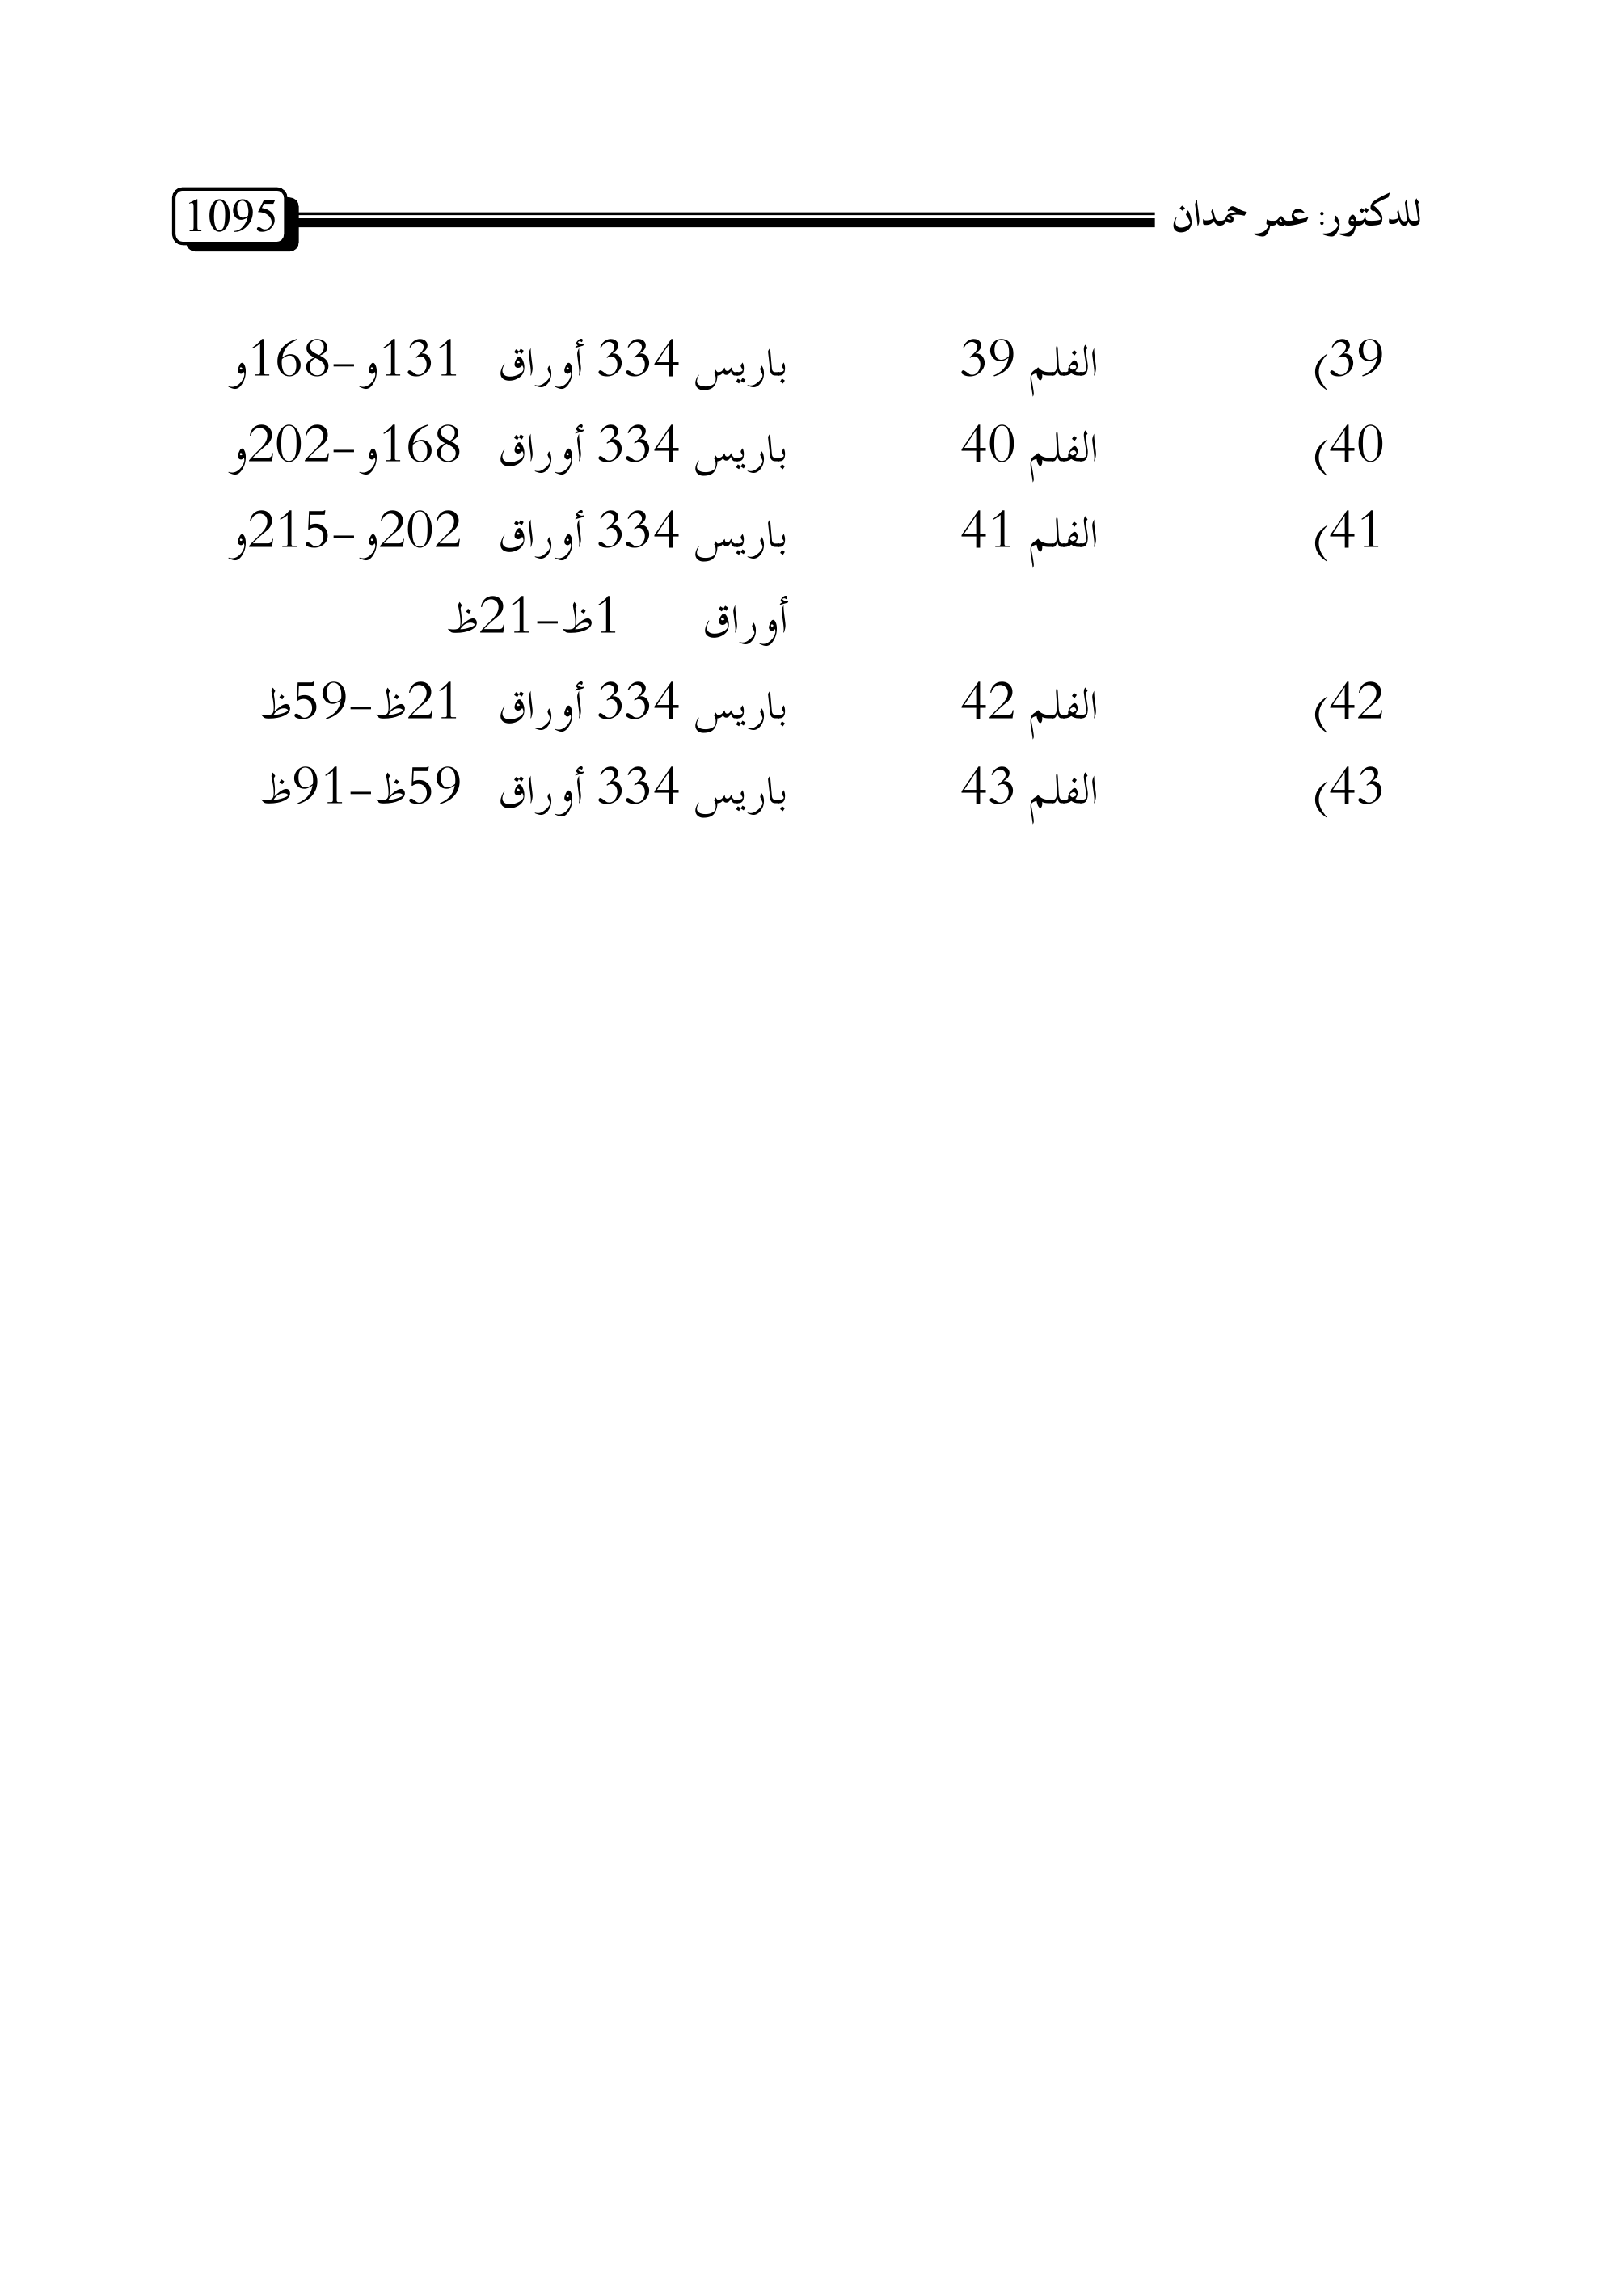 للدكتور: عمر حمدان 1095
39) الفلم 39 باريس 334 أوراق 131و–168و
40) الفلم 40 باريس 334 أوراق 168و–202و
41) الفلم 41 باريس 334 أوراق 202و–215و
أوراق 1ظ–21ظ
42) الفلم 42 باريس 334 أوراق 21ظ–59ظ
43) الفلم 43 باريس 334 أوراق 59ظ–91ظ